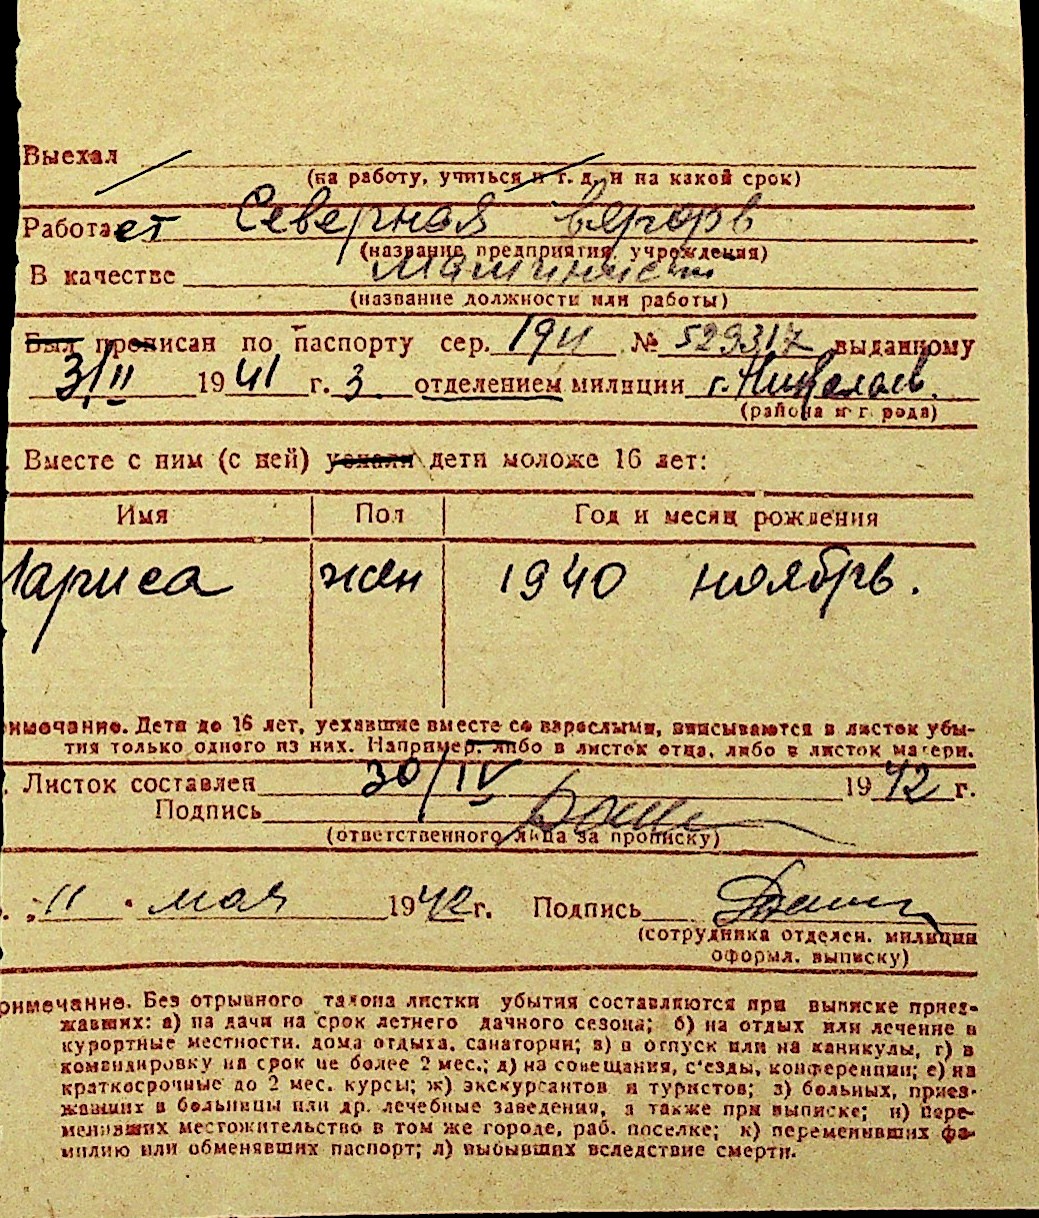 Выехал
(на работу, учиться и т. д. и на какой срок)
Работает Северная верфь
(название предприятия, учреждения)
В качестве машинист
(название должности или работы)
Был прописан по паспорту сер. № 529317 выданному
3/II 1941 г. 3 отделением милиции г. Николаев.
(района и города)
Вместе с ним (с ней) уехали дети моложе 16 лет:
Имя Пол Год и месяц рождения
Лариса жен 1940 ноябрь.
римечание. Дети до 16 лет, уехавшие вместе со взрослыми, вписываются в листок убы-
тия только одного из них. Например, либо в листок отца, либо в листок матери.
Листок составлен 30/IV 1942 г.
Подпись
(ответственного лица за прописку)
"11" мая 1942 г. Подпись
(сотрудника отделен. милиции
оформл. выписку)
римечание. Без отрывного талона листки убытия составляются при выписке приез-
жавших: а) на дачи на срок летнего дачного сезона; б) на отдых или лечение в
курортные местности, дома отдыха, санатории; в) в отпуск или на каникулы, г) в
командировку на срок не более 2 мес.; д) на совещания, с'езды, конференции; е) на
краткосрочные до 2 мес. курсы; ж) экскурсантов и туристов; з) больных, приез-
жавших в больницы или др. лечебные заведения, а также при выписке; и) пере-
менивших местожительство в том же городе, раб. поселке; к) переменивших фа-
милию или обменявших паспорт; л) выбывших вследствие смерти.